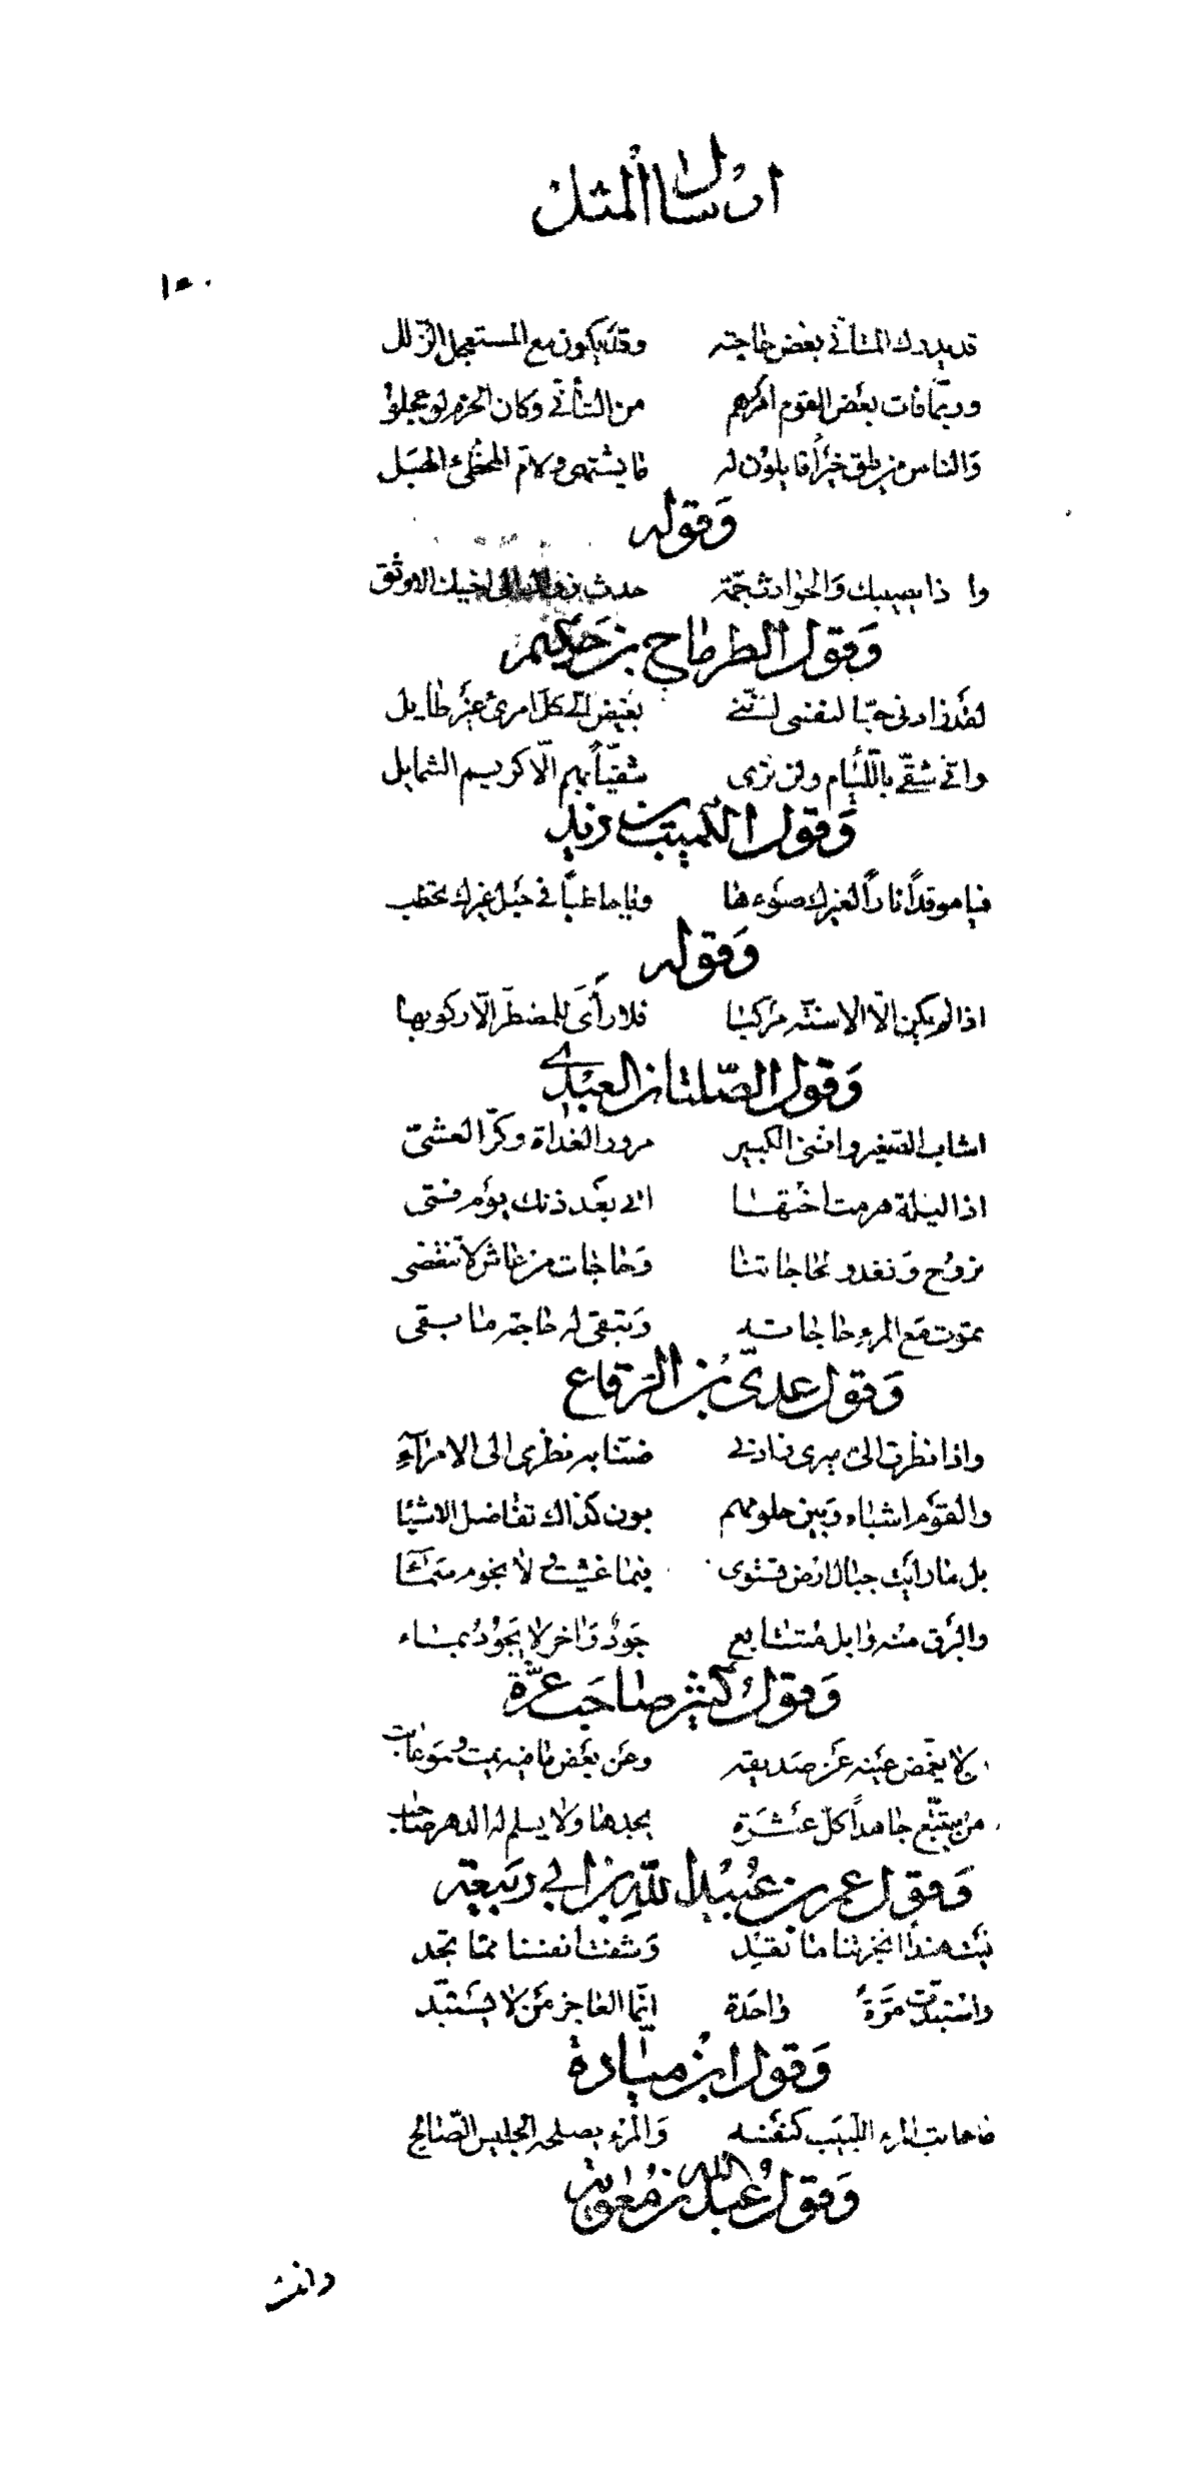 ارسال المثل
١٥٠
قد يدرك المتأنّي بعض حاجته وقد يكون مع المستعجل الزّلل
وربّما فات بعض القوم امرهم من التأنّي وكان الحزم لو عجلوا
والناس من يلق خيراً قايلون له ما يشتهى ولامّ المخطئ الهبل
وقوله
وا ذا يصيبك والحوادث جمّة حدث الى اخيك الاوثق
وقول الطرماح بن حكيم
لقد زادنى حبّا لنفسى انّني بغيض الى كلّ امرئ غير طايل
وانّي شقّي باللّئام ولن ترى شقيّاً بهم الّا كريم الشمايل
وقول الكميت بن زيد
فيا موقداً ناراً لغيرك ضوءها ويا حاطباً في حبل غيرك تحطب
وقوله
اذا لم يكن الّا الاسنّة مركبا فلا رأى للمضطرّ الّا ركوبها
وقول الصّلتان العبدي
اشاب الصّغير وافنى الكبير مرور الغداة وكرّ العشىّ
اذا ليلة هرمت اختها اتى بعد ذلك يوم فتى
نروح ونغدو لحاجاتنا وحاجات من عاش لا تنقضى
تموت مع المرء حاجاته وتبقى له حاجة ما بقى
وقول عدىّ بن الرقاع
واذا نظرت الىّ اميرى زادنى ضنّا به نظرى الى الامرآء
والقوم اشباه وبين حلومهم بون كذاك تفاضل الاشيا
بل ما رايت جبال ارض تستوى فيما غشيت ولا نجوم سمآء
والبرق منه وابل متتابع جود واخر لا يجود بماء
وقول كثير صاحب عزّة
لا يغمّض عينه عن صديقه وعن بعض ما فيه يمت وهو عاتب
من يتتبّع جاهداً كلّ عثرة يجدها ولا يسلم له الدهر صاحب
وقول عمر بن عبيد الله بن ابي ربيعة
ليت هنداً انجزتنا ما تعد وشفت انفسنا ممّا تجد
واستبدّت مرّة واحدة انّما العاجز من لا يستبّد
وقول ابن ميّادة
ما عاتب المرء اللبيب كنفسه والمرء يصلحه الجليس الصّالح
وقول عبد الله بن معوية
وانت